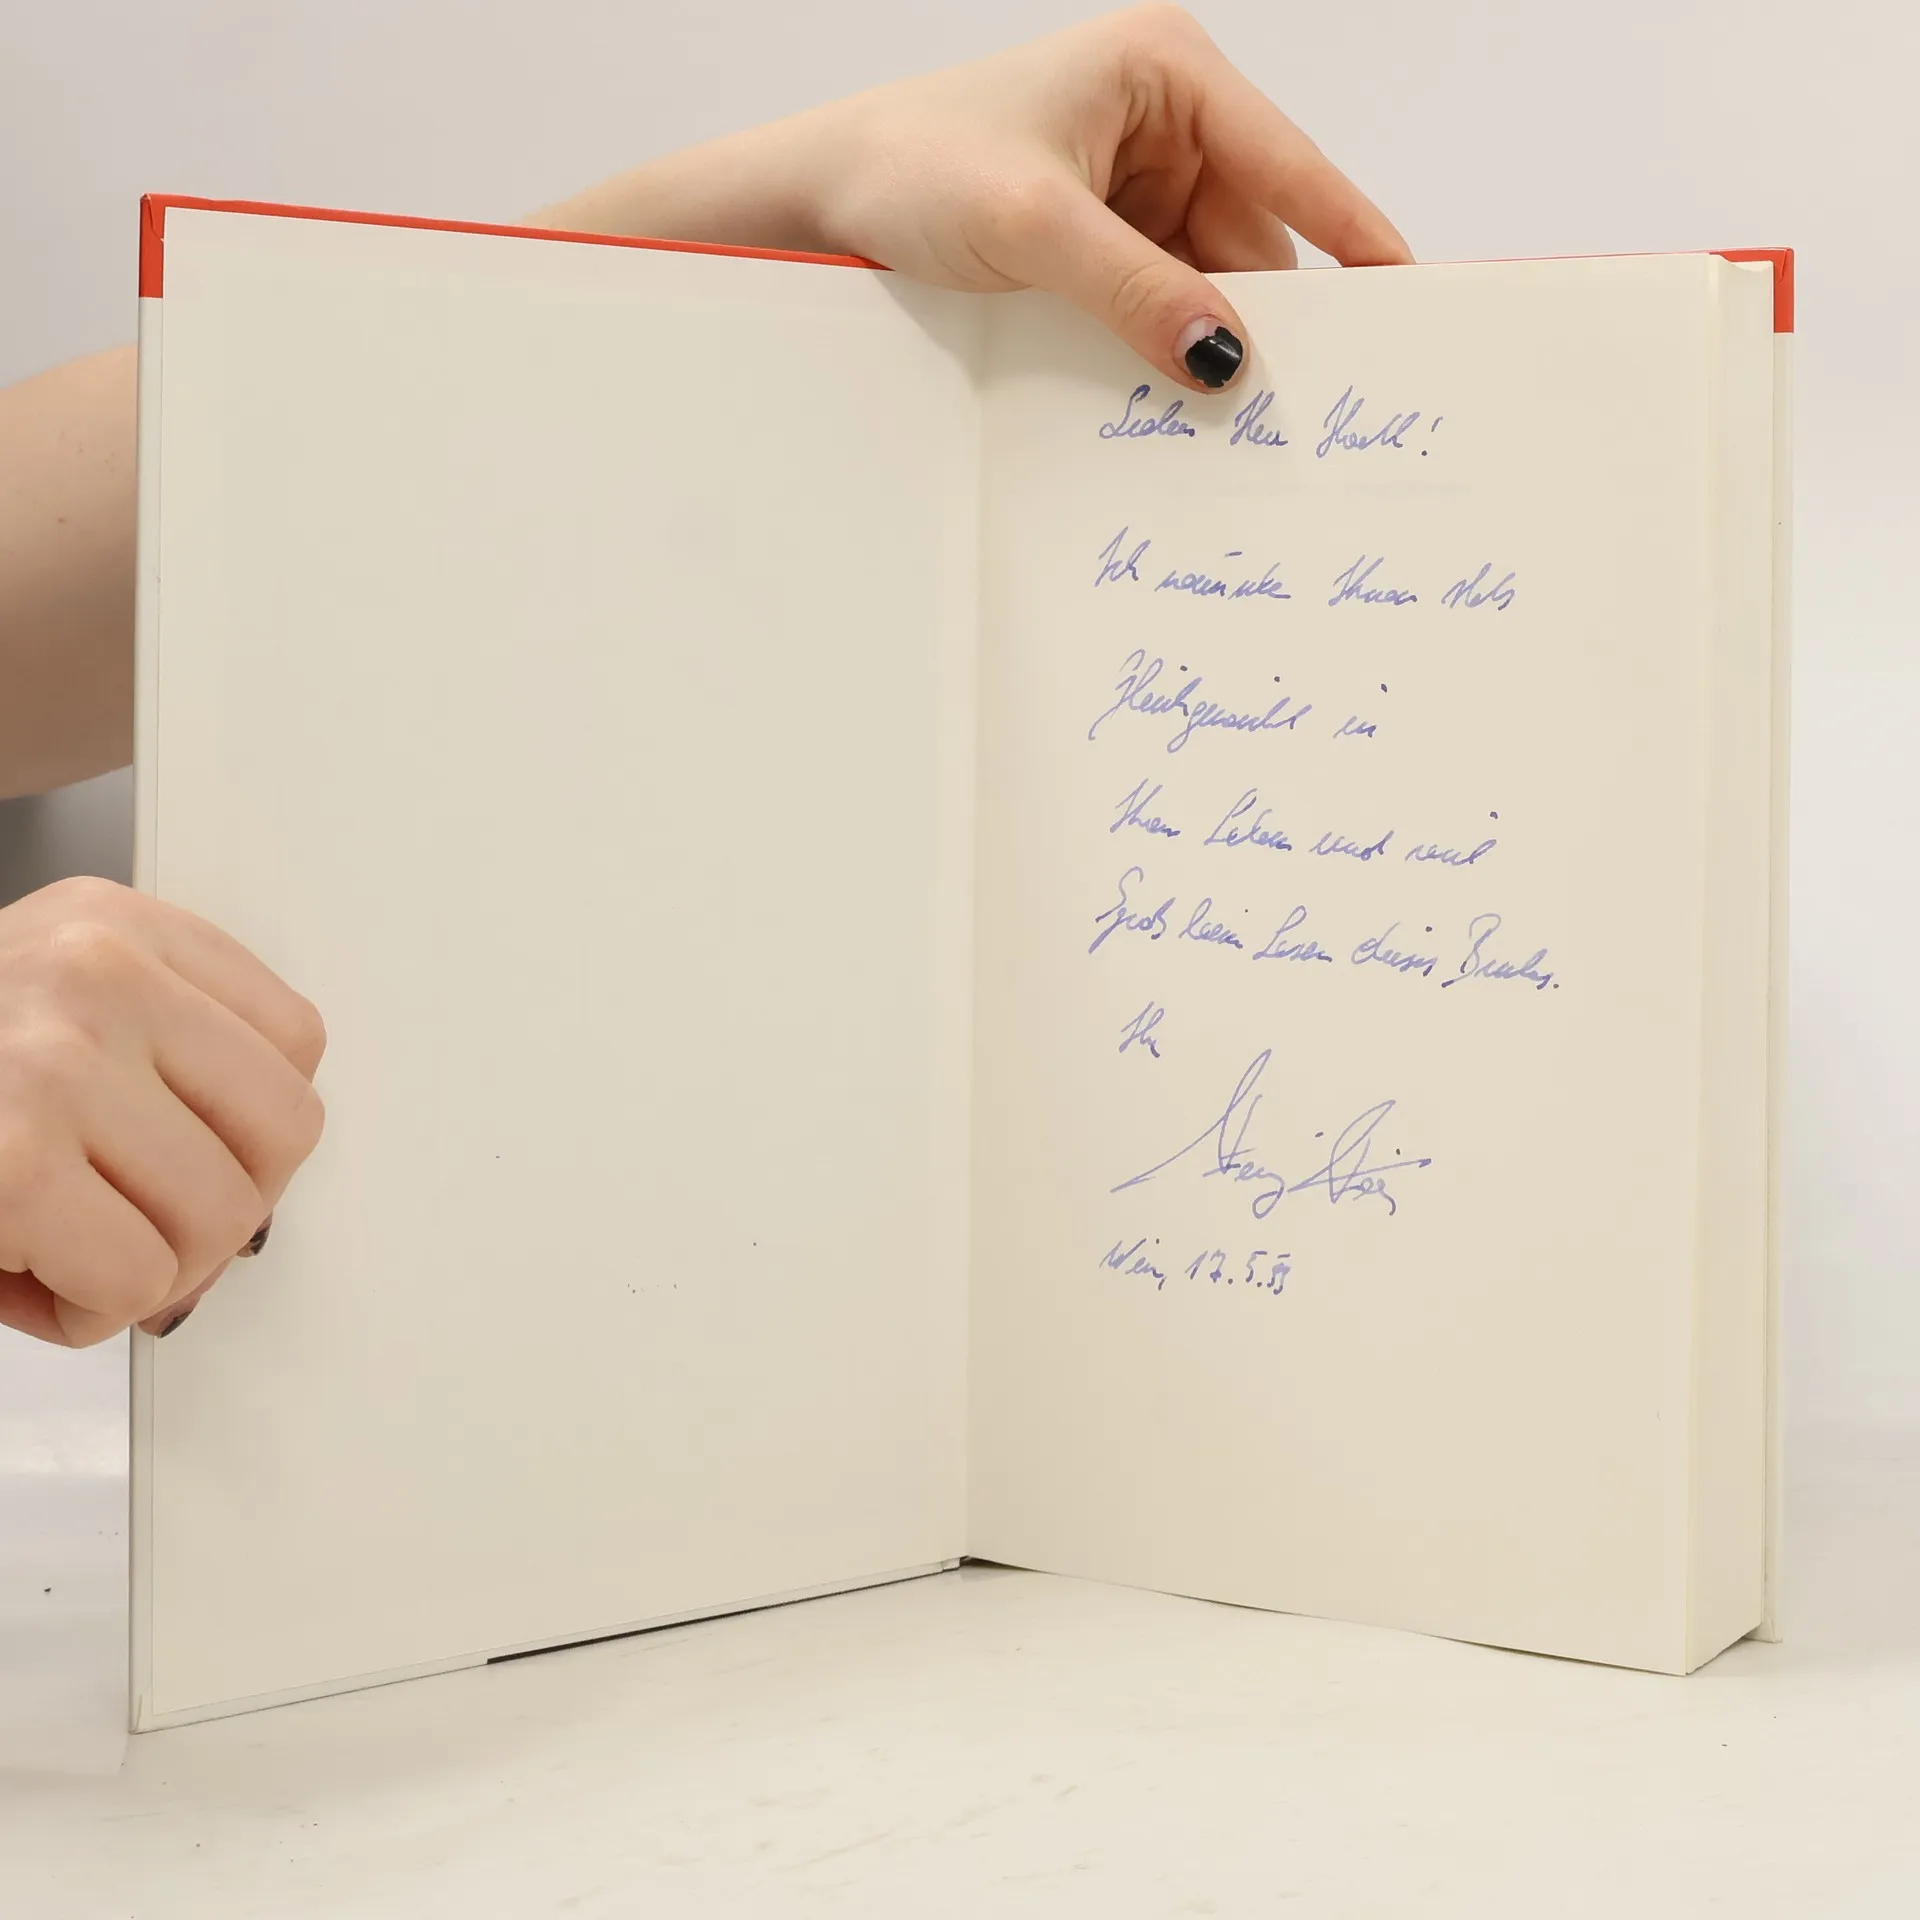 Lieber Herr
Ich wünsche Ihnen stets
Gleichgewicht in
Ihrem Leben und viel
Spaß beim Lesen dieses Buches.
Ihr
Wien, 17.5.